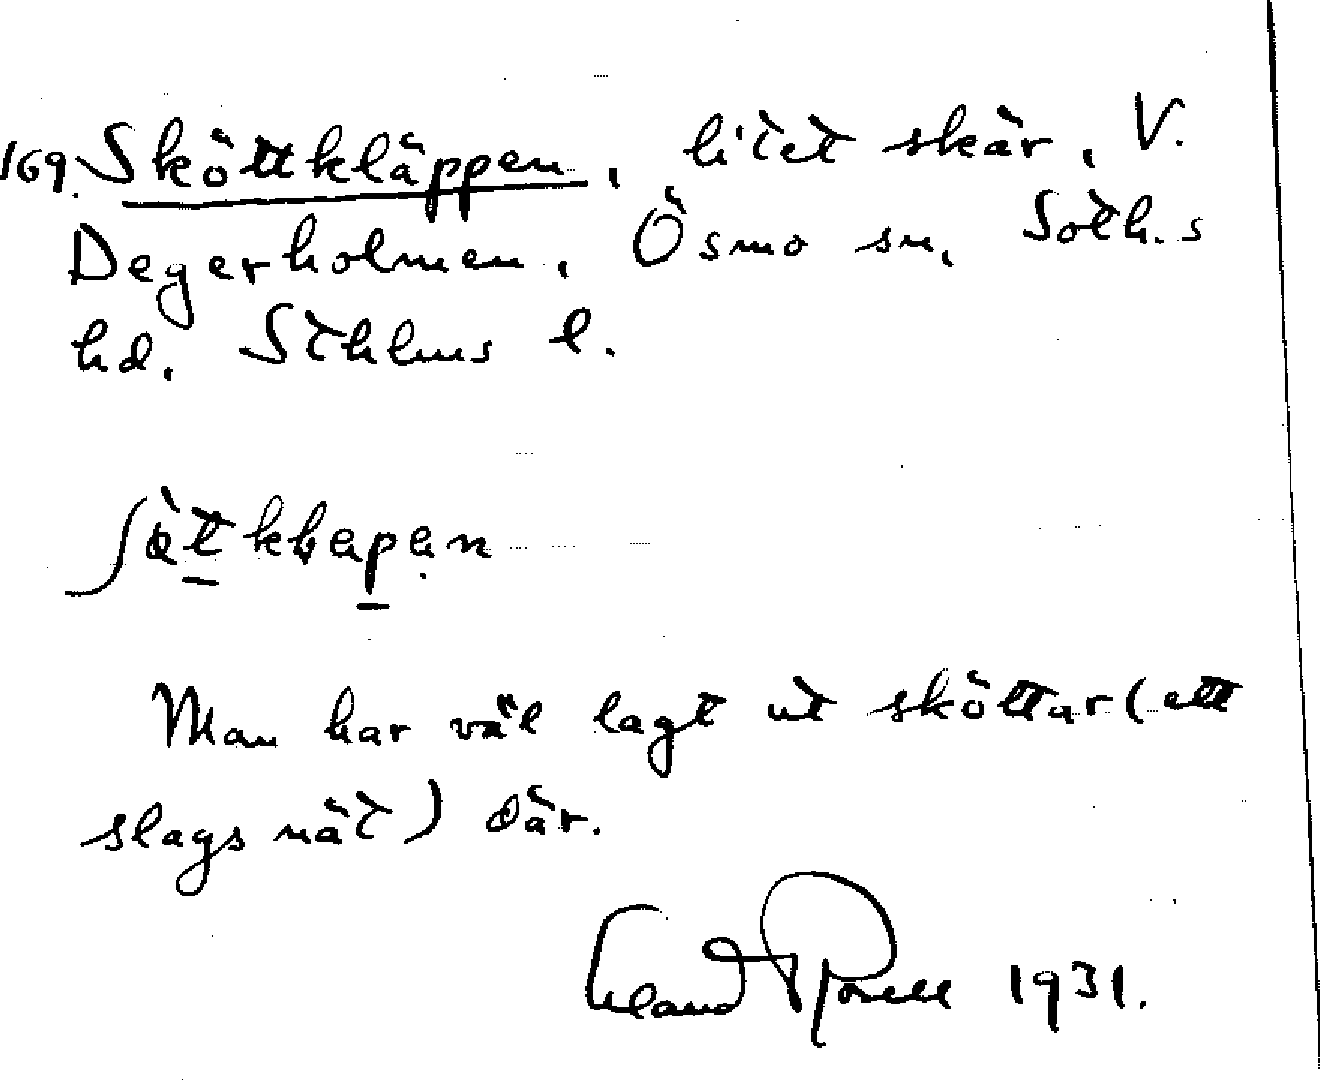 169. Sköttkläppen, litet skär, V.
Degerholmen, Ösmo sn, Soth.s
hd. Sthlms l.
Man har väl lagt ut sköttar (ett
slags nät) där.
1931.